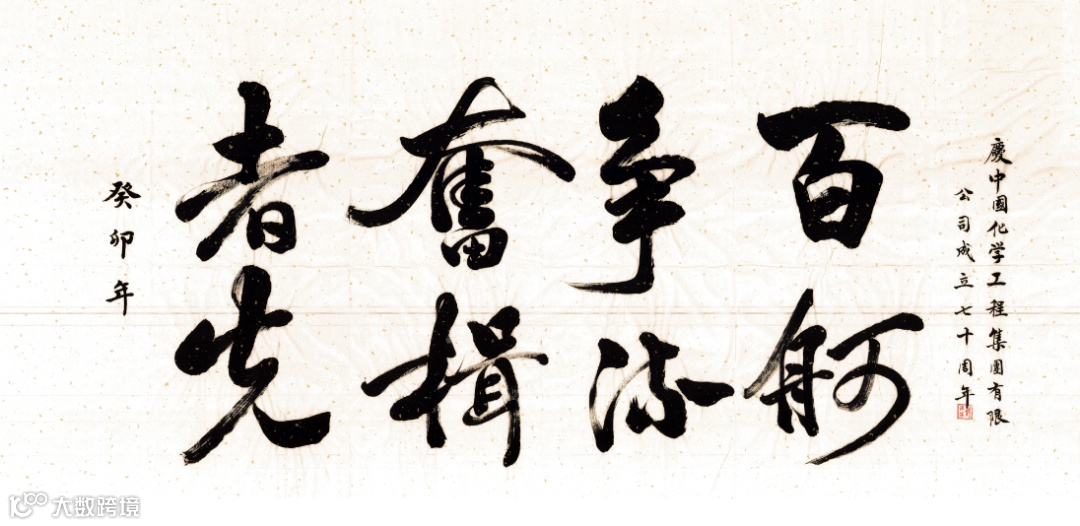 慶中國化学工程集團有限
公司成立七十周年
百舸
争流
奮楫
者先
癸卯年
大数跨境